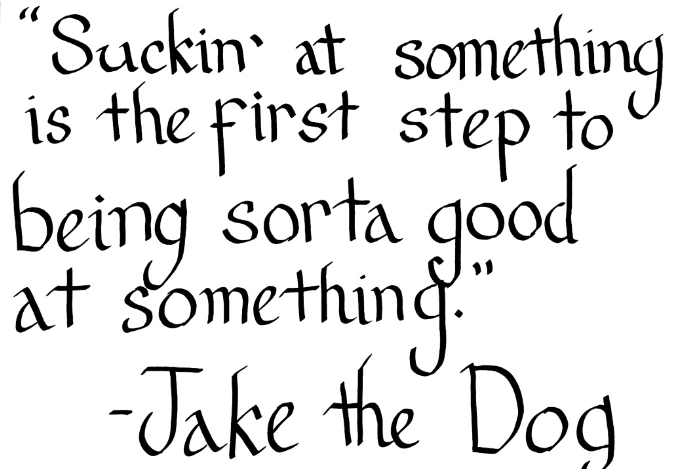 “Suckin' at something
is the first step to
being sorta good
at something.”
-Jake the Dog